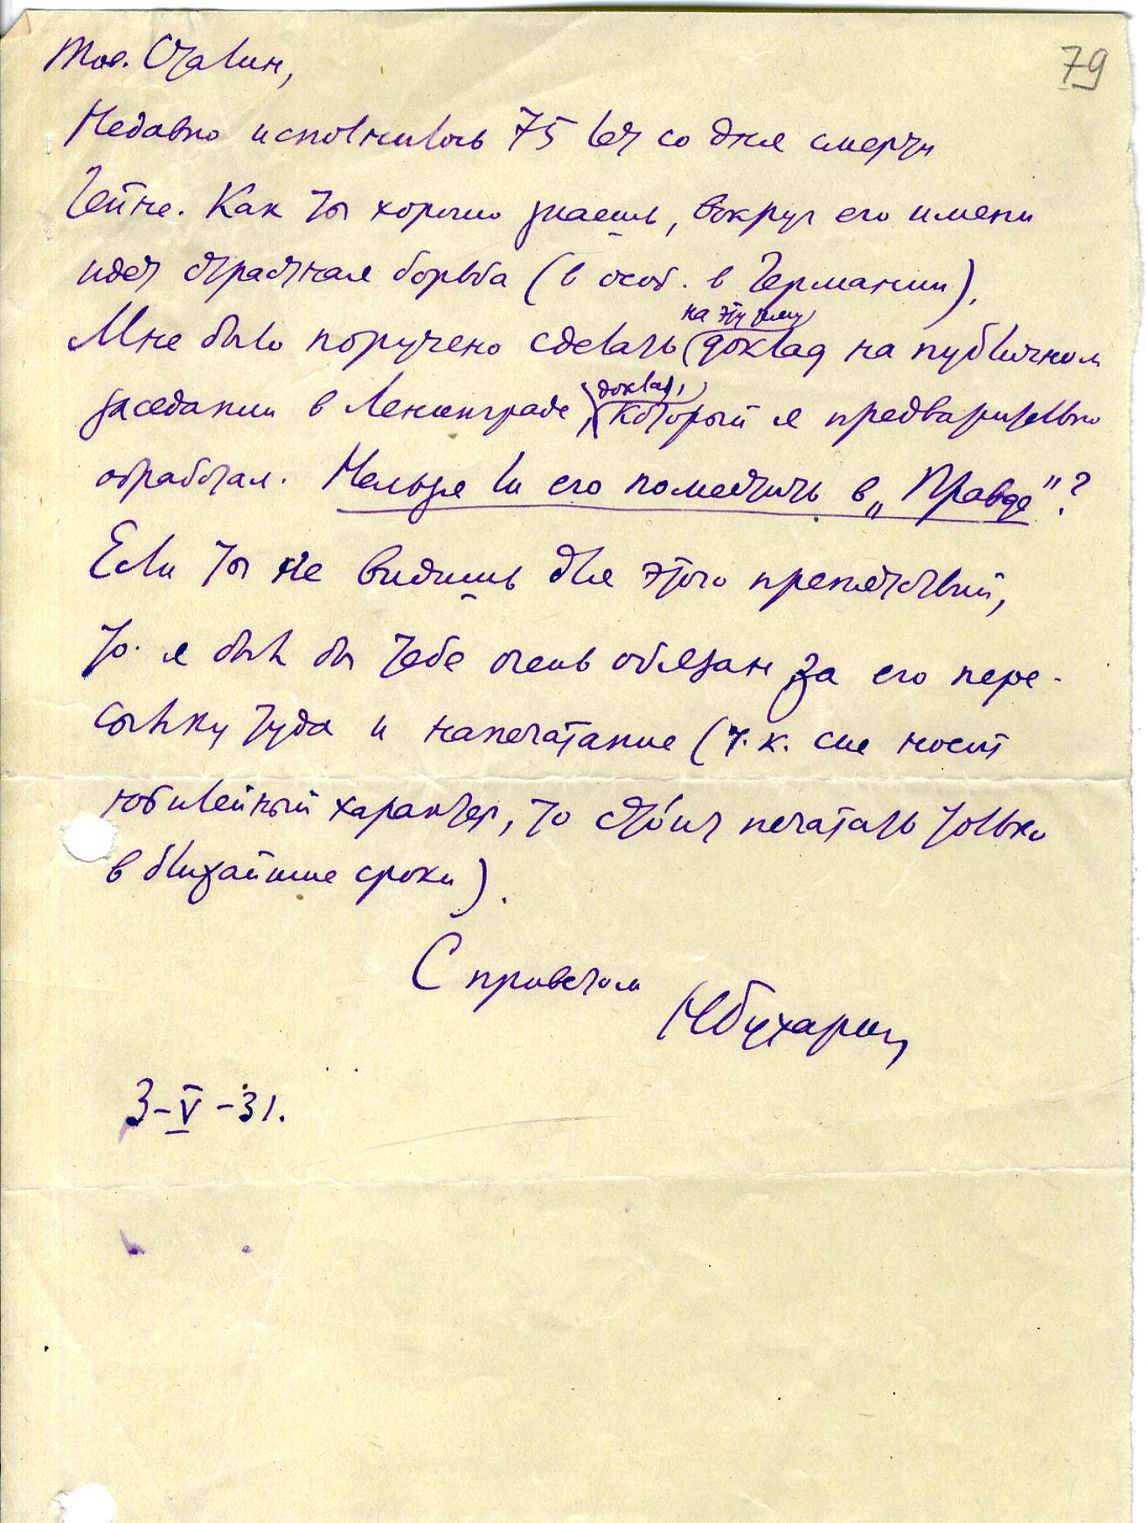 79
Тов. Сталин,
Недавно исполнилось 75 лет со дня смерти
Гейне. Как ты хорошо знаешь, вокруг его имени
идет страстная борьба (в особ. в Германии).
на эту тему
Мне было поручено сделать доклад на публичном
доклад,
заседании в Ленинграде, который я предварительно
обработал. Нельзя ли его поместить в „Правде"?
Если ты не видишь для этого препятствий,
то я был бы тебе очень обязан за его пере-
сылку туда и напечатание (т.к. сие носит
юбилейный характер, то сто́ит печатать только
в ближайшие сроки).
С приветом
Н Бухарин
3-V-31.